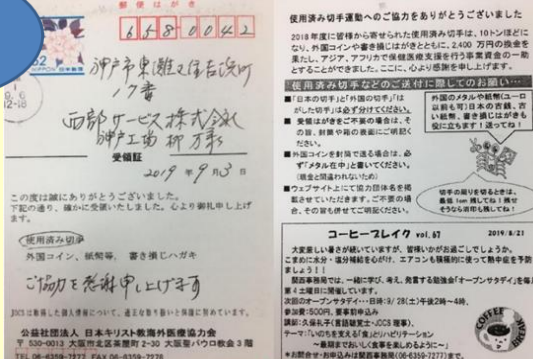 郵便はがき
658 0042
62
NIPPON 日本郵便
神戸市東灘区住吉浜町
西部サービス株式会社
神戸工場
受領証
2019年9月3日
この度は誠にありがとうございました。
下記の通り、確かに受領いたしました。心より御礼申し上げ
ます。
使用済み切手
外国コイン、紙幣等、書き損じハガキ
ご協力を感謝申し上げます
JOCSに登録した個人情報について、適正な取り扱いと保護に努めています。
公益社団法人 日本キリスト教海外医療協力会
〒530-0013 大阪市北区茶屋町2-30 大阪聖パウロ教会3階
TEL 06-6359-7277 FAX 06-6359-7278
使用済み切手運動へのご協力をありがとうございました
2018年度に皆様から寄せられた使用済み切手は、10トンほどに
なり、外国コインや書き損じはがきとともに、2,400万円の換金を
果たし、アジア、アフリカで保健医療支援を行う事業資金の一助
とすることができました。ここに、心より感謝を申し上げます。
使用済み切手などのご送付に際してのお願い…
■「日本の切手」と「外国の切手」「は
がした切手」は必ず分けてください。
■ 受領はがきをご不要の場合は、そ
の旨、封筒や箱の表面にご明記くだ
さい。
■外国コインを封筒で送る場合は、必
ず「メタル在中」と書いてください。
(現金と間違われないため)
■ウェブサイト上にて協力団体名を掲
載させていただきます。ご不要の場
合、その旨も併せてご明記ください。
外国のメタルや紙幣(ユーロ
以前も可)日本の古銭、古
い紙幣、書き損じはがきも
役に立ちます!送ってね!
切手の周りを切るときは、
最低1cm残してね!残せ
そうなら消印も残してね!
コーヒーブレイク vol.67
2019/8/21
大変厳しい暑さが続いていますが、皆様いかがお過ごしでしょうか。
こまめに水分・塩分補給を心がけ、エアコンも積極的に使って熱中症を予防
しましょう!!
関西事務局では、一緒に学び、考え、発言する勉強会「オープンサタデイ」を毎月
第4土曜日に開催しています。
次回のオープンサタデイ…日時:9/28(土)午後2時~4時、
参加費:500円、要事前申込み
講師:久保礼子(言語聴覚士・JOCS理事)、
テーマ:「いのちを支える「食」とリハビリテーション
~最期までおいしく食事を楽しめるように~」
*お問合せ・お申込みは関西事務局(06-6359-7277)まで。
COFFEE BREAK